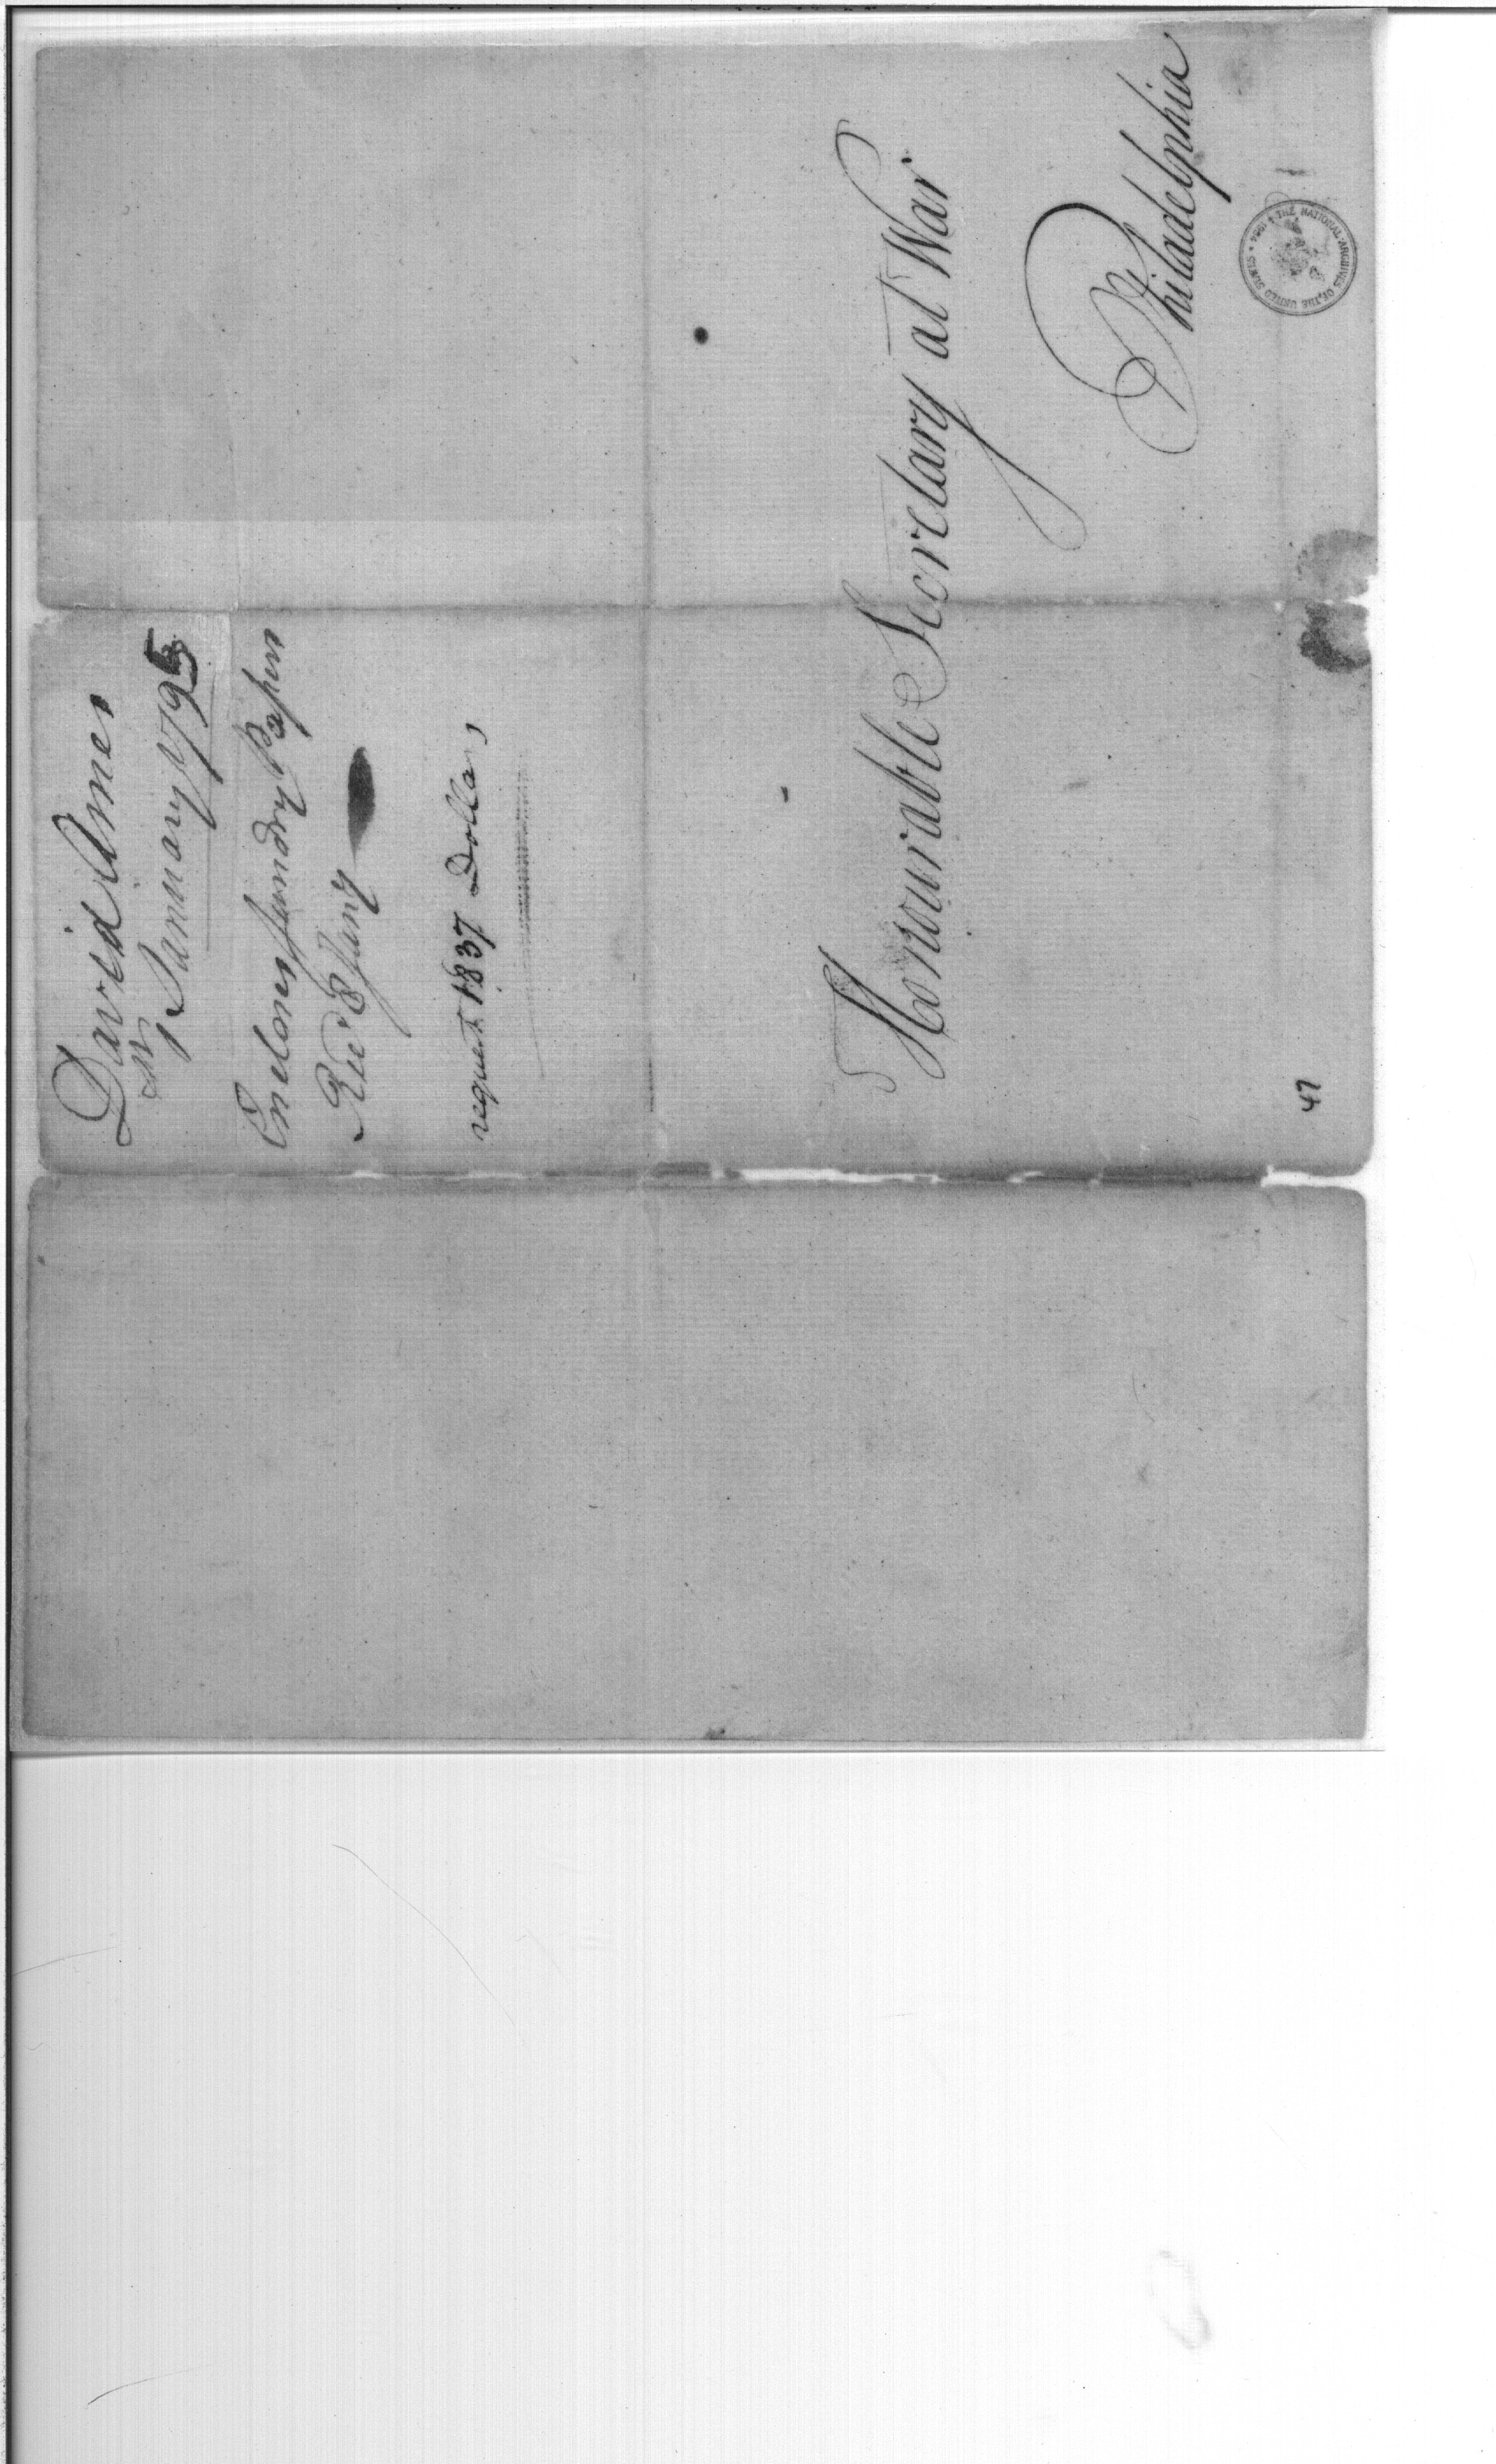 David Ames
1st January 1795
Encloses sundry Papers
Recd 8 Jany
request 1837 Dollars
Honourable Secretary at War
Philadelphia
THE NATIONAL ARCHIVES OF THE UNITED STATES • 1934 •
47